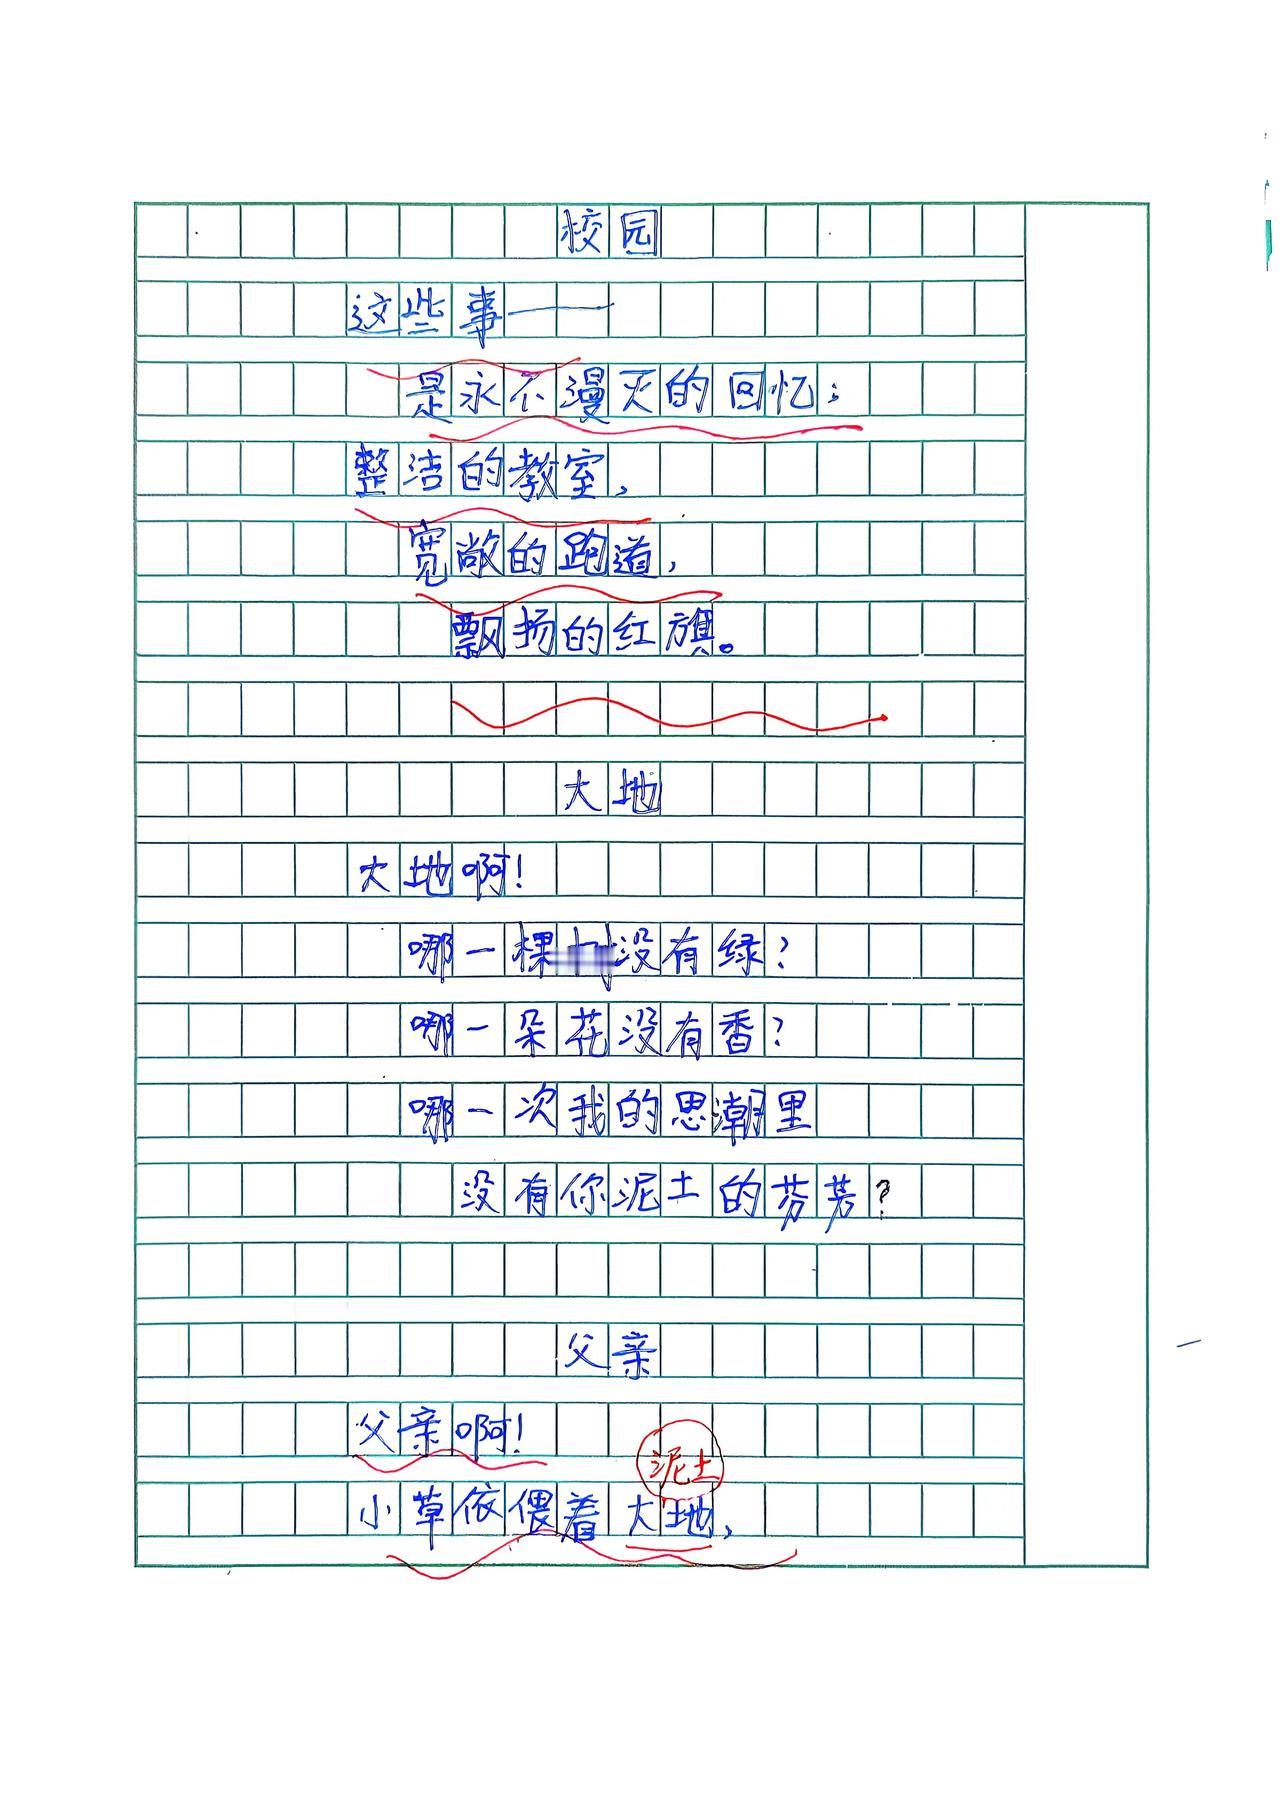 校园
这些事——
是永不漫灭的回忆；
整洁的教室，
宽敞的跑道，
飘扬的红旗。
大地
大地啊！
哪一棵没有绿？
哪一朵花没有香？
哪一次我的思潮里
没有你泥土的芬芳？
父亲
父亲啊！
泥土
小草依偎着大地，